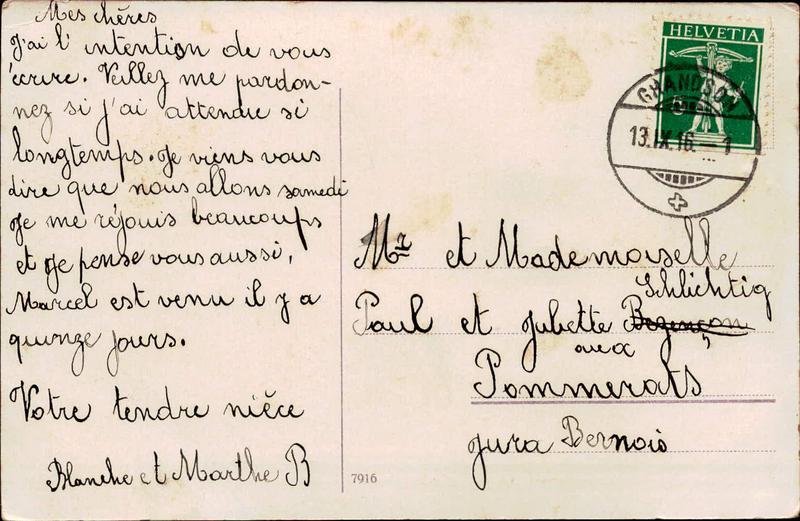 Mes chères
J'ai l'intention de vous
écrire. Veillez me pardon-
nez si j'ai attendu si
longtemps. Je viens vous
dire que nous allons samedi
Je me réjouis beaucoups
et je pense vous aussi,
Marcel est venu il y a
quinze jours.
Votre tendre nièce
Blanche et Marthe B
7916
HELVETIA
GRANDSON
13.IX.16.–1
Mr et Mademoiselle
Schlichtig
Paul et Juliette Bezençon
aux
Pommerats
Jura Bernois